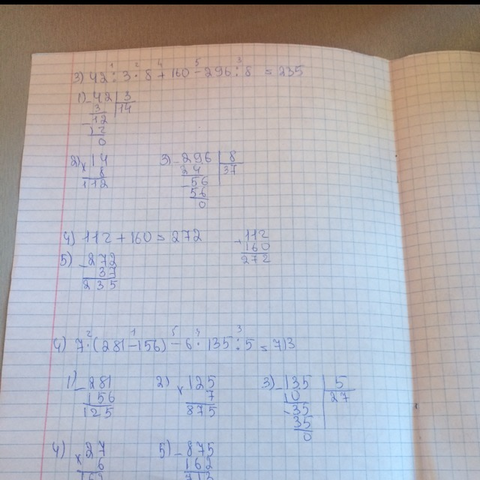 1 2 4 5 3
3) 42 : 3 · 8 + 160 - 296 : 8 = 235
1) - 42 | 3
3 | 14
12
- 12
0
2) × 14
8
112
3) - 296 | 8
24 | 37
- 56
56
0
4) 112 + 160 = 272
+ 112
160
272
5) - 272
37
235
2 1 5 4 3
4) 7 · (281 - 156) - 6 · 135 : 5 = 713
1) - 281
156
125
2) × 125
7
875
3) - 135 | 5
10 | 27
- 35
35
0
4) × 27
6
162
5) - 875
162
713